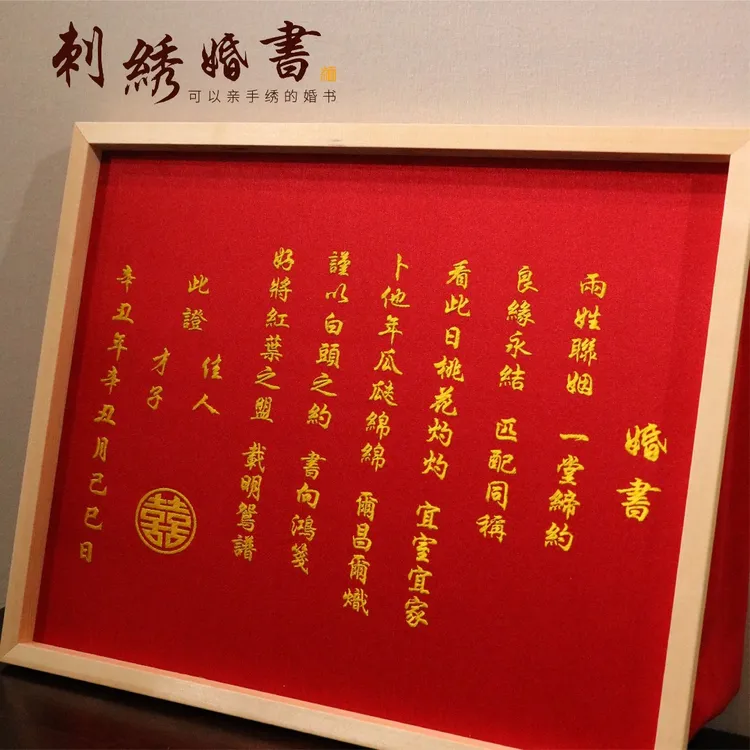 刺綉婚書
可以亲手绣的婚书
婚書
兩姓聯姻 一堂締約
良緣永結 匹配同稱
看此日桃花灼灼 宜室宜家
卜他年瓜瓞綿綿 爾昌爾熾
謹以白頭之約 書向鴻箋
好將紅葉之盟 載明鴛譜
此證 佳人
才子
辛丑年辛丑月己巳日
囍